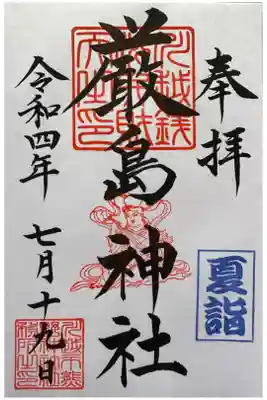 奉拝
夏詣
厳島神社
令和四年
七月十九日